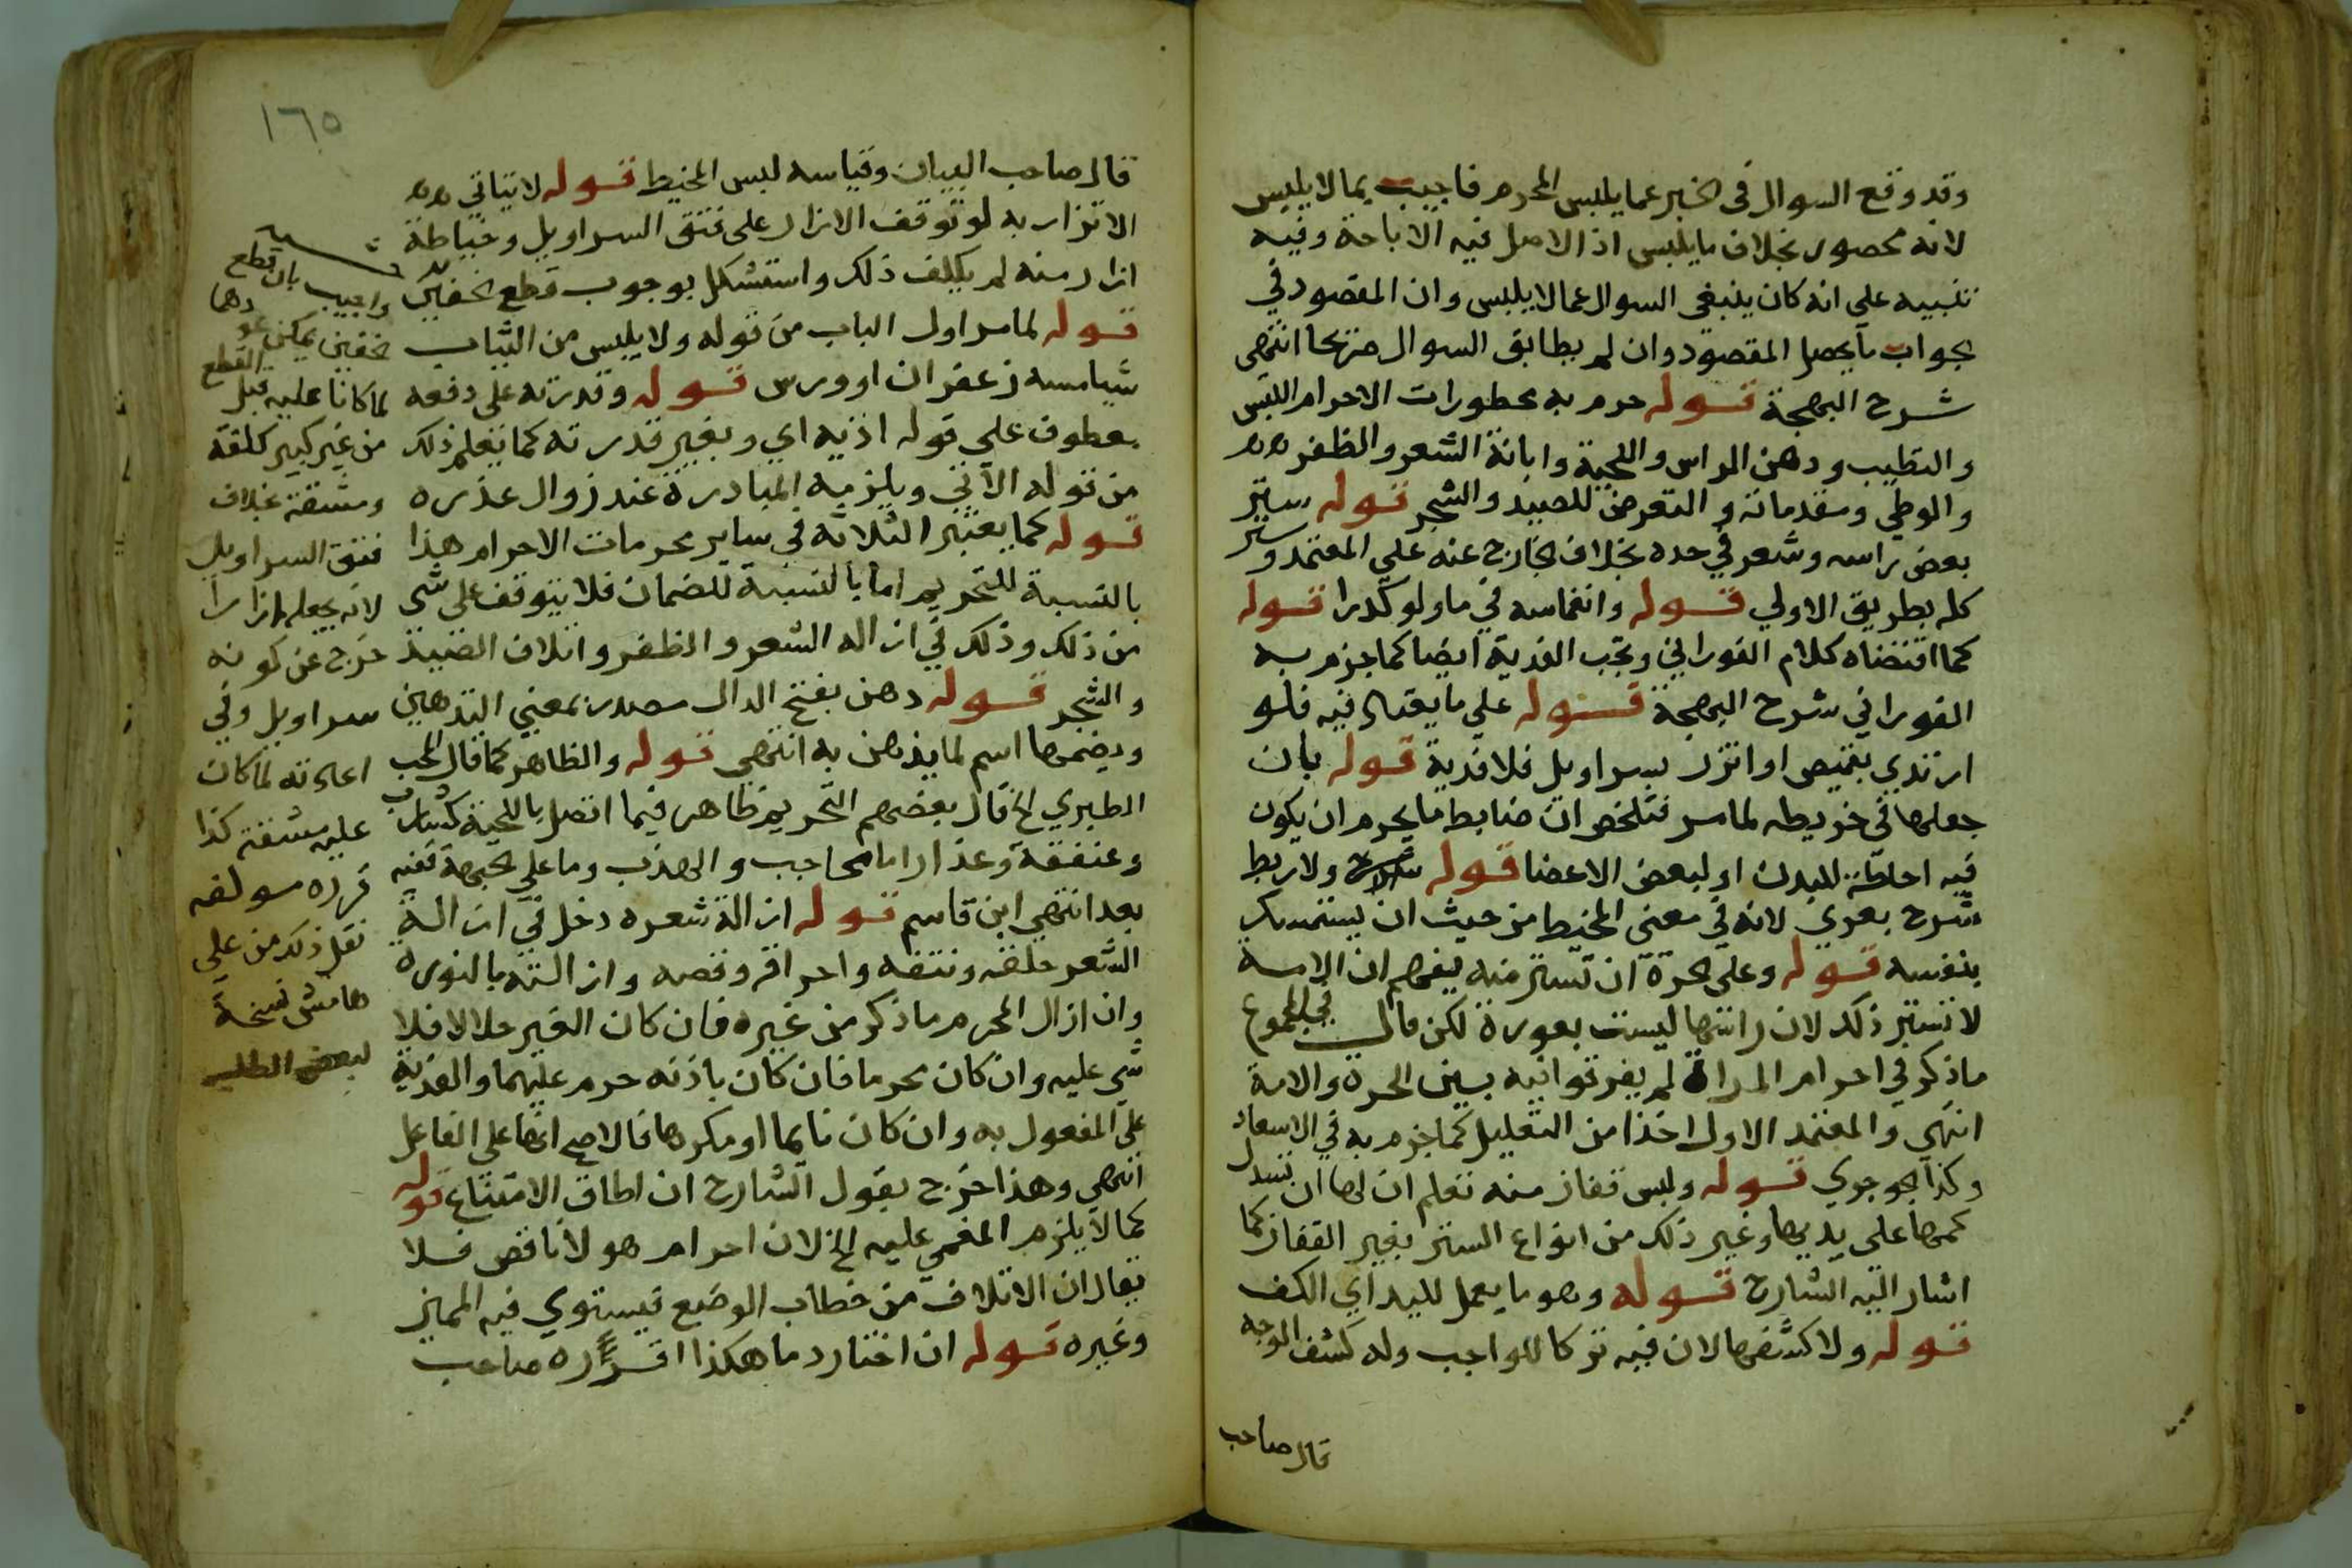 وقد وقع السوال فى الخبر عما يلبس المحرم فاجيب بما لا يلبس
لانه محصور بخلاف ما يلبس اذ الاصل فيه الاباحة وفيه
تنبيه على انه كان ينبغى السوال عما لا يلبس وان المقصود في
الجواب ما يحصل المقصود وان لم يطابق السوال صريحا انتهي
شرح البهجة قوله حرم به محظورات الاحرام اللبس
والتطيب ودهن الراس واللحية وابانة الشعر والظفر
والوطي ومقدماته والتعرض للصيد والشجر قوله ستر
بعض راسه وشعر في حده بخلاف الخارج عنه علي المعتمد وستر
كله بطريق الاولي قوله وانغماسه في ماء ولو كدرا قوله
كما اقتضاه كلام الفوراني وتجب الفدية ايضا كما جزم به
الفوراني شرح البهجة قوله علي ما يعتاد فيه فلو
ارتدي بقميص او اتزر بسراويل فلا فدية قوله بان
جعلها في خريطه لما مر فتلخص ان ضابط ما يحرم ان يكون
فيه احاطة للبدن او لبعض الاعضا قوله ولا ربط
شرح بعري لانه في معنى المخيط من حيث ان يستمسك
بنفسه قوله وعلى الحرة ان تستر منه يفهم ان الامه
لا تستر ذلك لان راسها ليست بعورة لكن قال في المجموع
ما ذكر في احرام المراة لم يفرقوا فيه بين الحرة والامة
انتهي والمعتمد الاول اخذا من التعليل كما جزم به في الاسعاد
وكذا الجوجري قوله ولبس قفاز منه تعلم ان لها ان تسدل
كمها على يديها وغير ذلك من انواع الستر بغير القفاز كما
اشار اليه الشارح قوله وهو ما يعمل لليد اي الكف
قوله ولا كشفها لان فيه تركا للواجب وله كشف الوجه
قال صاحب
١٦٥
قال صاحب البيان وقياسه لبس المخيط قوله لا يتاتي
الاتزار به لو توقف الازار على فتق السراويل وخياطة
ازار منه لم يكلف ذلك واستشكل بوجوب قطع الخفين
قوله لما مر اول الباب من قوله ولا يلبس من الثياب
شيا مسه زعفران او ورس قوله وقدرته على دفعه
معطوف على قوله اذنه اي وبغير قدرته كما تعلم ذلك
من قوله الآتي ويلزمه المبادرة عند زوال عذره
قوله كما يعتبر الثلاثة في ساير محرمات الاحرام هذا
بالنسبة للتحريم اما بالنسبة للضمان فلا يتوقف على شي
من ذلك وذلك في ازالة الشعر والظفر واتلاف الصيد
والشجر قوله دهن بفتح الدال مصدر بمعني التدهين
وبضمها اسم لما يدهن به انتهي قوله والظاهر كما قال المحب
الطبري الخ قال بعضهم التحريم ظاهر فيما اتصل باللحية كشارب
وعنفقة وعذار اما الحاجب والهدب وما على الجبهة ففيه
بعد انتهي ابن قاسم قوله ازالة شعره دخل في ازالة
الشعر حلقه ونتفه واحراقه وقصه وازالته بالنورة
وان ازال المحرم ما ذكر من غيره فان كان الغير حلالا فلا
شي عليه وان كان محرما فان كان باذنه حرم عليهما والفدية
على المفعول به وان كان نايما او مكرها فالاصح انها على الفاعل
انتهي وهذا خرج بقول الشارح ان اطاق الامتناع قوله
كما لا يلزم المغمي عليه الخ لان احرامه هو لا ناقص فلا
يقال ان الاتلاف من خطاب الوضع فيستوي فيه المميز
وغيره قوله ان اختار دما هكذا اقرره صاحب
واجيب بان قطع
الخفين يمكن عودهما
لما كانا عليه قبل القطع
من غير كبير كلفة
ومشقة بخلاف
فتق السراويل
لانه بجعله ازارا
خرج عن كونه
سراويل وفي
اعادته لما كان
عليه مشقة كذا
قرره مولفه
نقل ذلك من على
هامش نسخة
لبعض الطلبه